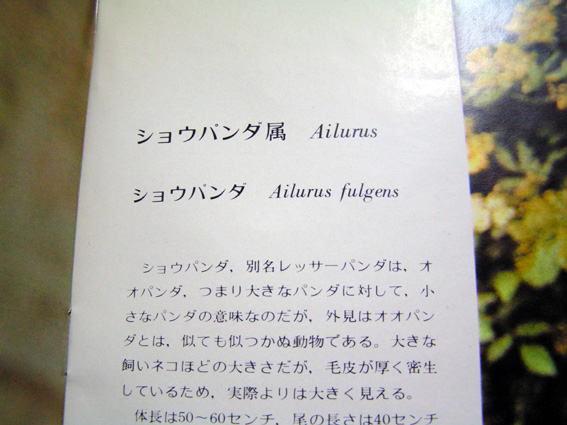 ショウパンダ属 Ailurus
ショウパンダ Ailurus fulgens
ショウパンダ，別名レッサーパンダは，オ
オパンダ，つまり大きなパンダに対して，小
さなパンダの意味なのだが，外見はオオパン
ダとは，似ても似つかぬ動物である。大きな
飼いネコほどの大きさだが，毛皮が厚く密生
しているため，実際よりは大きく見える。
体長は50〜60センチ，尾の長さは40センチ